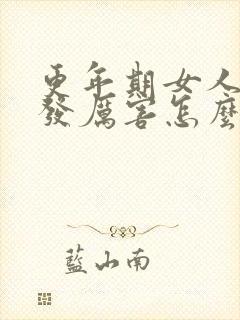 更年期女人
發厲害怎麼
藍山南